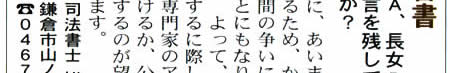 書
A、長女
言を残して
か?
に、あいま
るため、か
間の争いに
とにもなり
よって、
するに際し
専門家のア
けるか、公
するのが望
ます。
司法書士
鎌倉市山ノ
☎0467